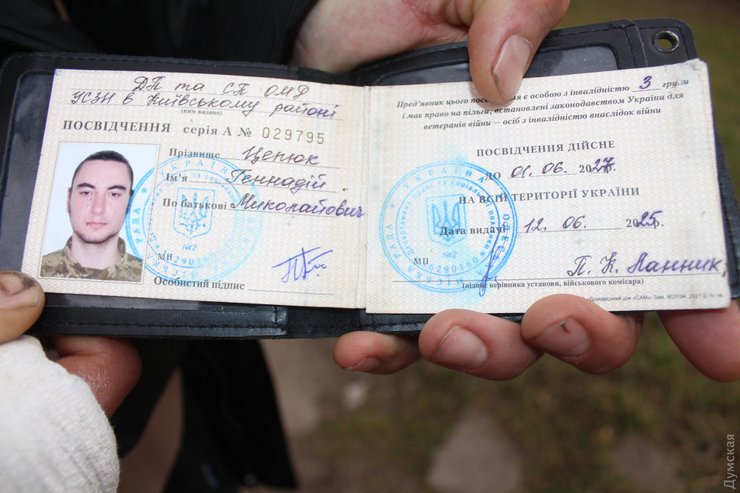 ДП та СП ОМР
УСЗН в Київському районі
(ким видано)
ПОСВІДЧЕННЯ серія А № 029795
Прізвище Ценюк
Ім'я Геннадій
По батькові Миколайович
МП
Особистий підпис
Пред'явник цього посвідчення є особою з інвалідністю 3 групи
і має право на пільги, встановлені законодавством України для
ветеранів війни — осіб з інвалідністю внаслідок війни
ПОСВІДЧЕННЯ ДІЙСНЕ
ДО 01.06.2027р.
НА ВСІЙ ТЕРИТОРІЇ УКРАЇНИ
Дата видачі 12.06 2025р.
МП
(підпис керівника установи, військового комісара)
УКРАЇНА
№2
Думская